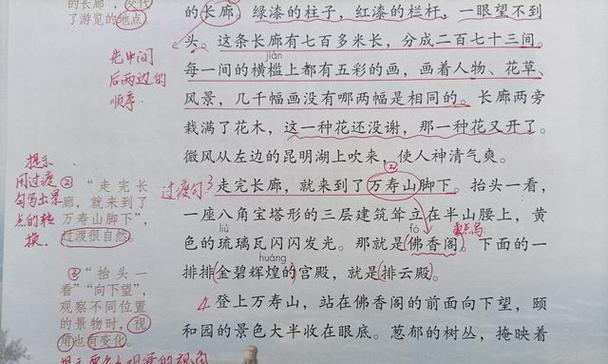 的长廊，绿漆的柱子，红漆的栏杆，一眼望不到
头。这条长廊有七百多米长，分成二百七十三间。
jiàn
每一间的横槛上都有五彩的画，画着人物、花草、
风景，几千幅画没有哪两幅是相同的。长廊两旁
栽满了花木，这一种花还没谢，那一种花又开了。
微风从左边的昆明湖上吹来，使人神清气爽。
过渡句 3 走完长廊，就来到了万寿山脚下。抬头一看，
一座八角宝塔形的三层建筑耸立在半山腰上，黄
liú fó
色的琉璃瓦闪闪发光。那就是佛香阁。下面的一
huáng
排排金碧辉煌的宫殿，就是排云殿。
4 登上万寿山，站在佛香阁的前面向下望，颐
和园的景色大半收在眼底。葱郁的树丛，掩映着
的长廊”，交代
了游览的地点
先中间
后两边的
顺序.
提示
用过渡
句写出景
点的转
换.
② “走完长
廊，就来到了
万寿山脚下”，
过渡很自然。
③ “抬头一
看”“向下望”，
观察不同位置
的景物时，视
角也有变化。